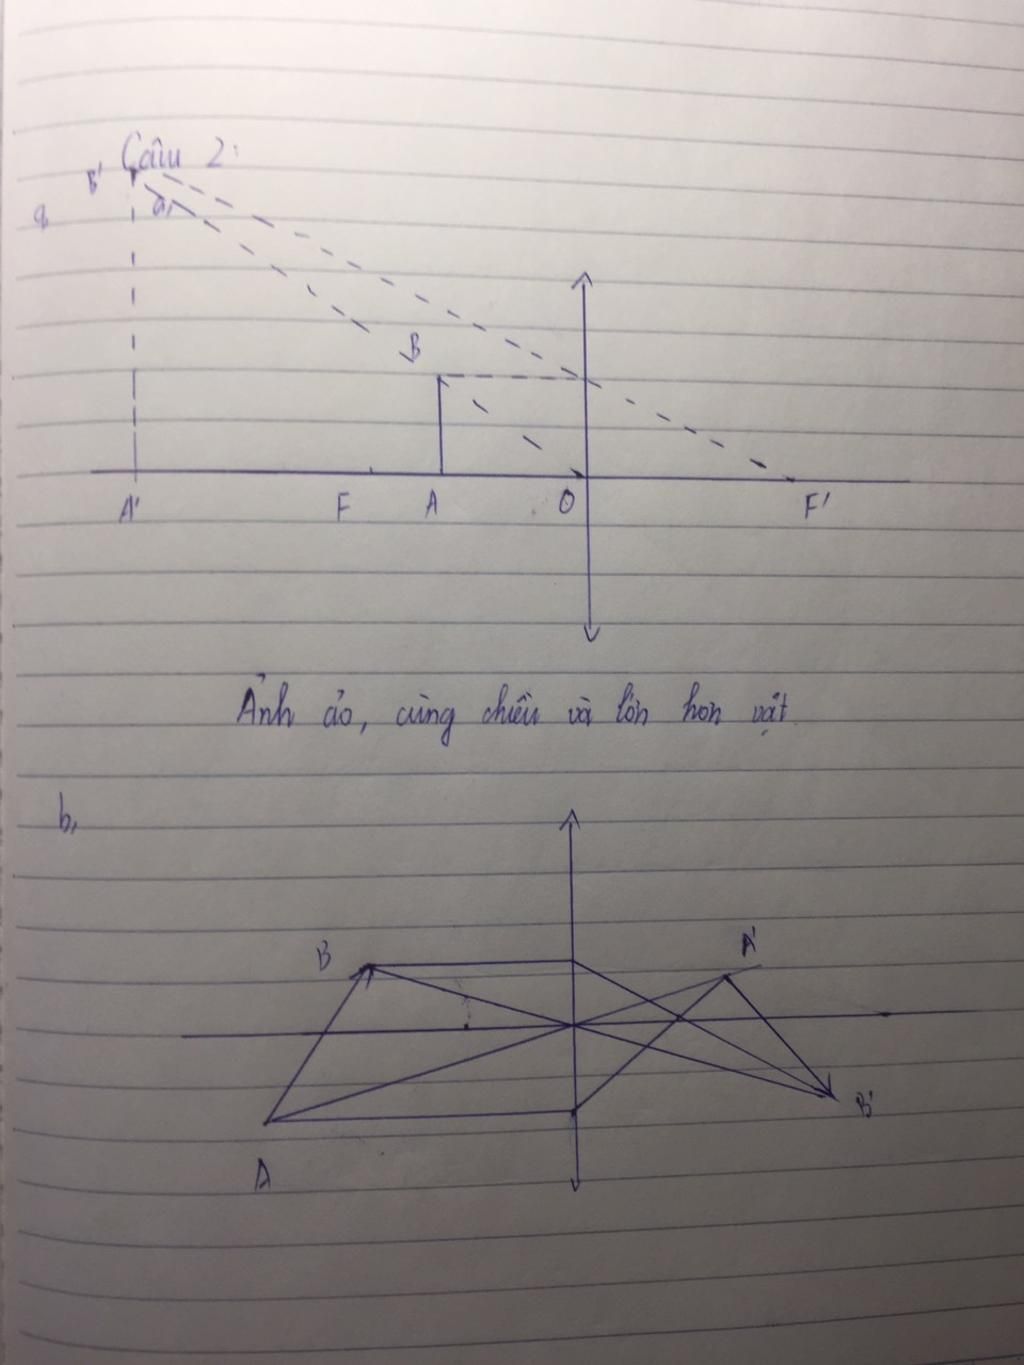 Câu 2:
B'
a,
B
A' F A O F'
Ảnh ảo, cùng chiều và lớn hơn vật
b,
B A'
B'
A